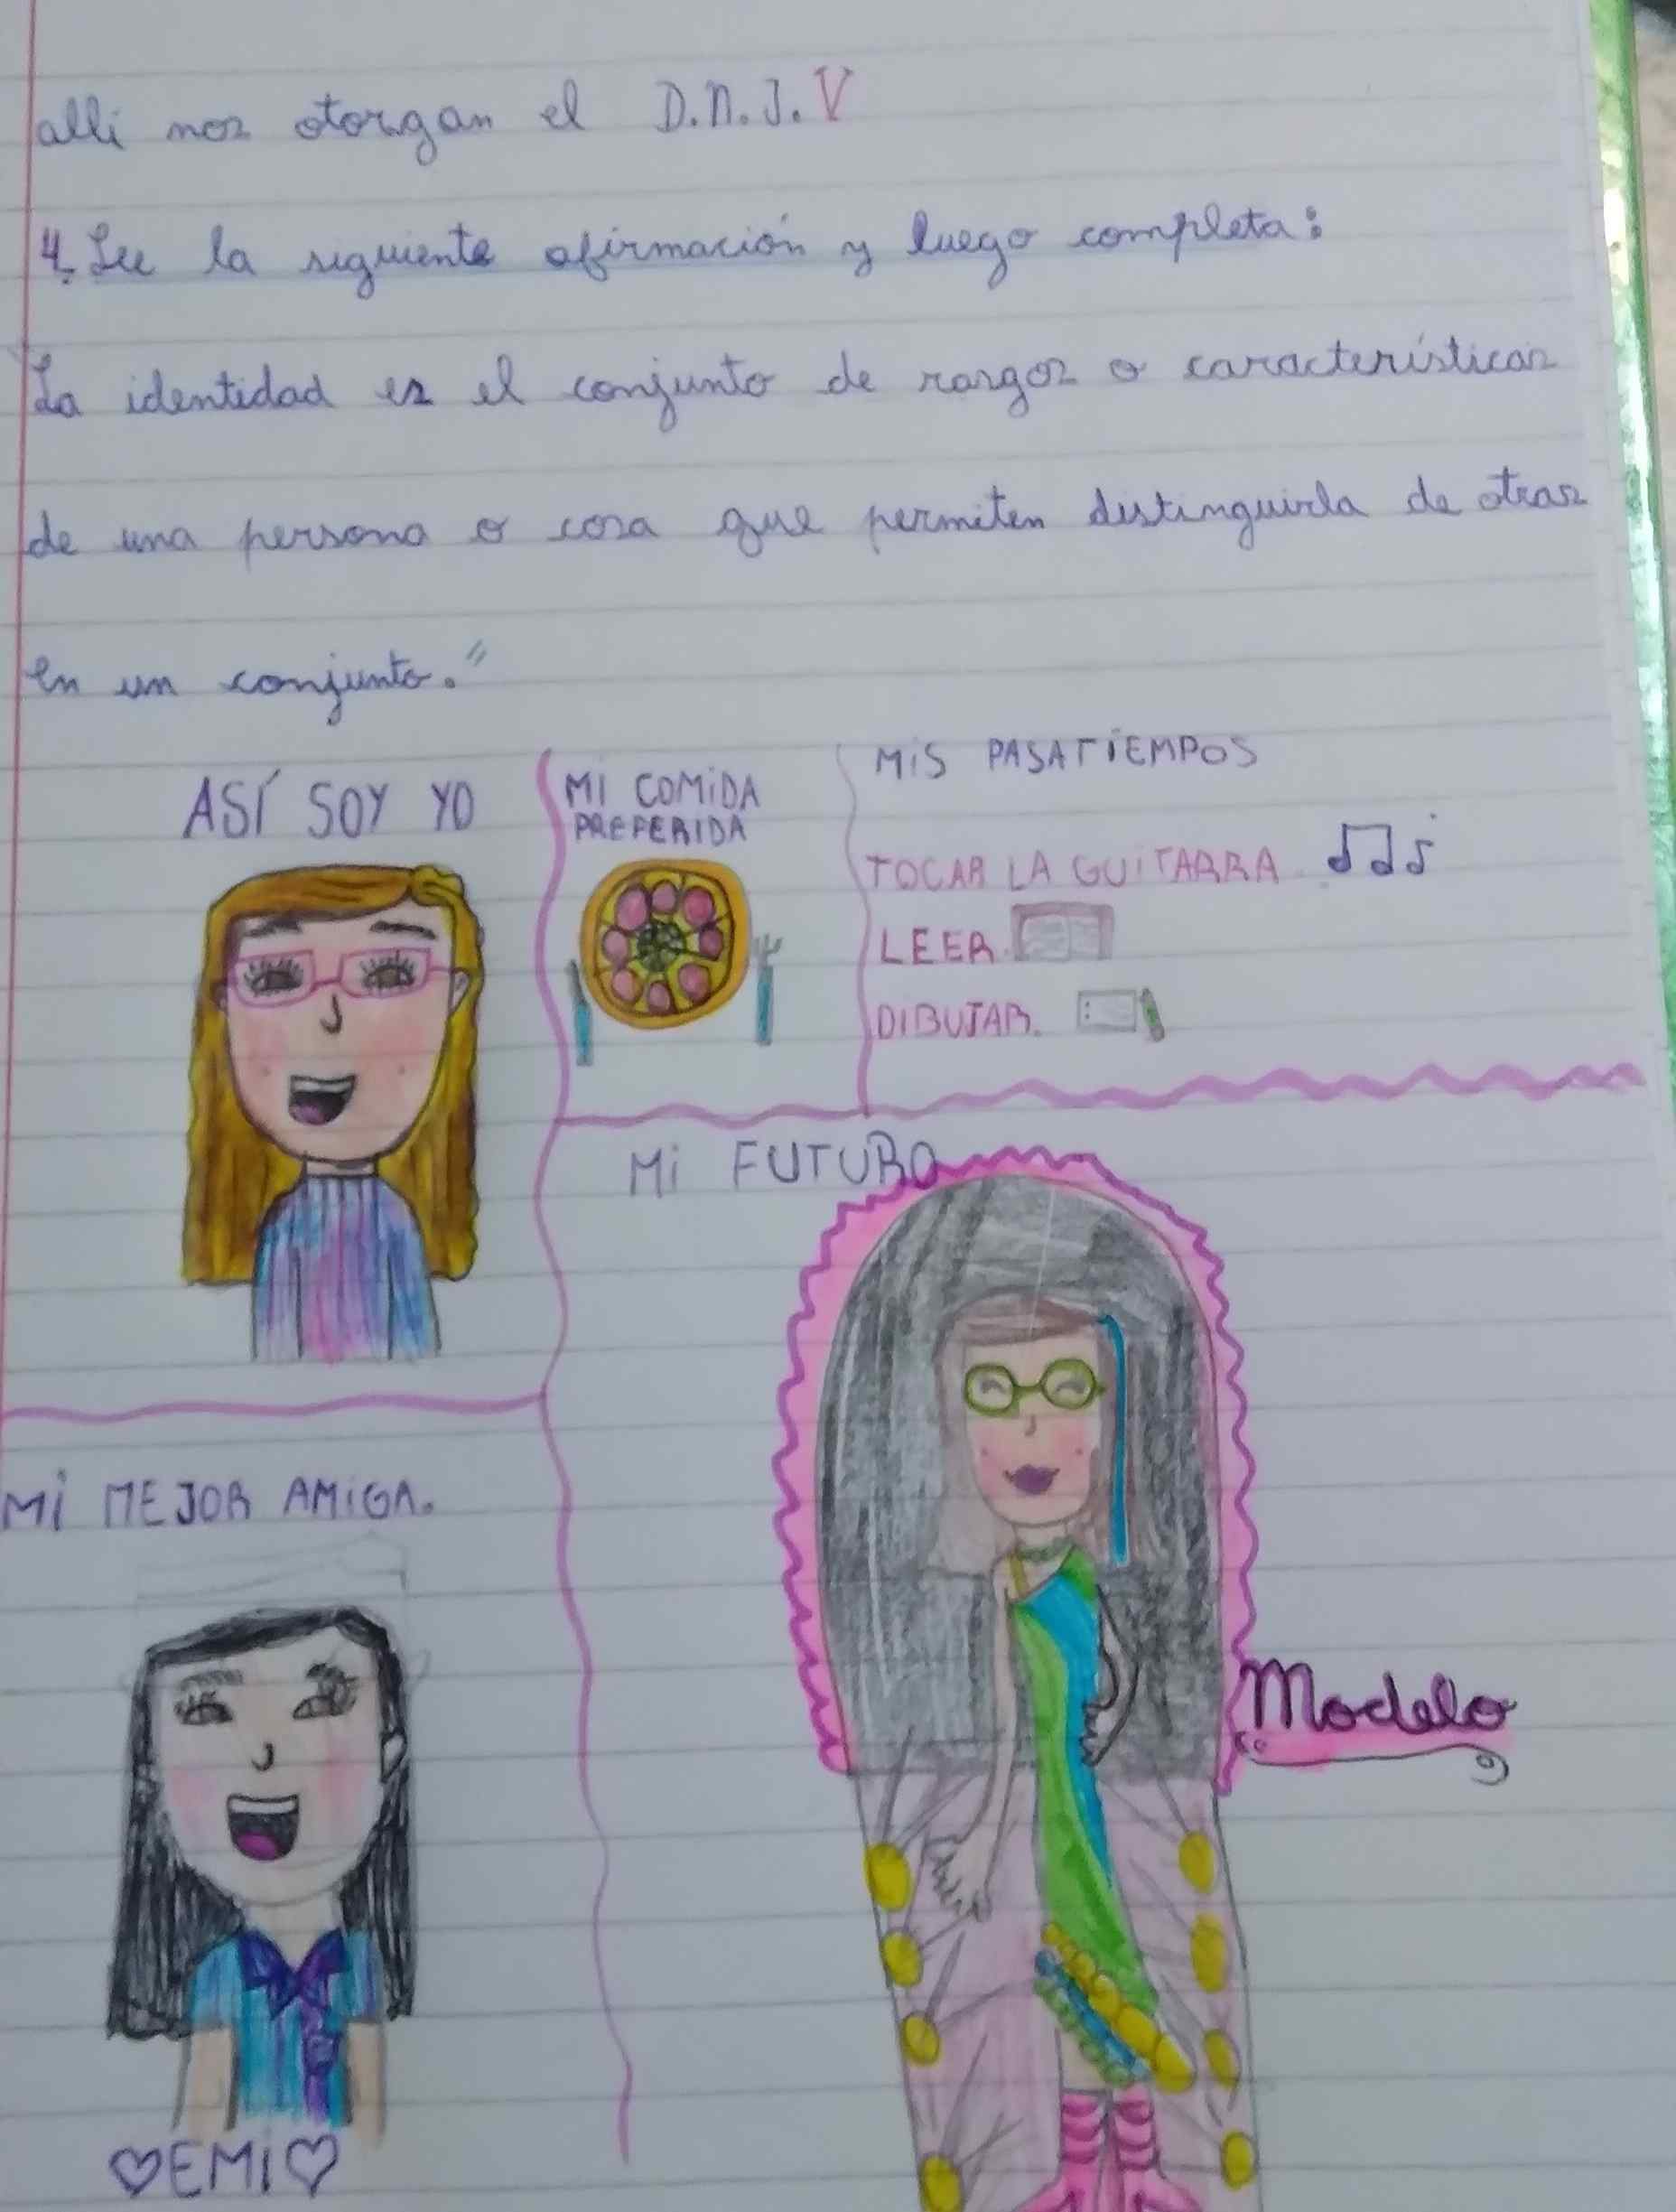 alli nos otorgan el D.N.I. V
4. Lee la siguiente afirmación y luego completa:
"La identidad es el conjunto de rasgos o características
de una persona o cosa que permiten distinguirla de otras
en un conjunto."
ASÍ SOY YO
MI COMIDA
PREFERIDA
MIS PASATIEMPOS
TOCAR LA GUITARRA
LEER.
DIBUJAR.
MI FUTURO
Modelo
MI MEJOR AMIGA.
♡EMI♡